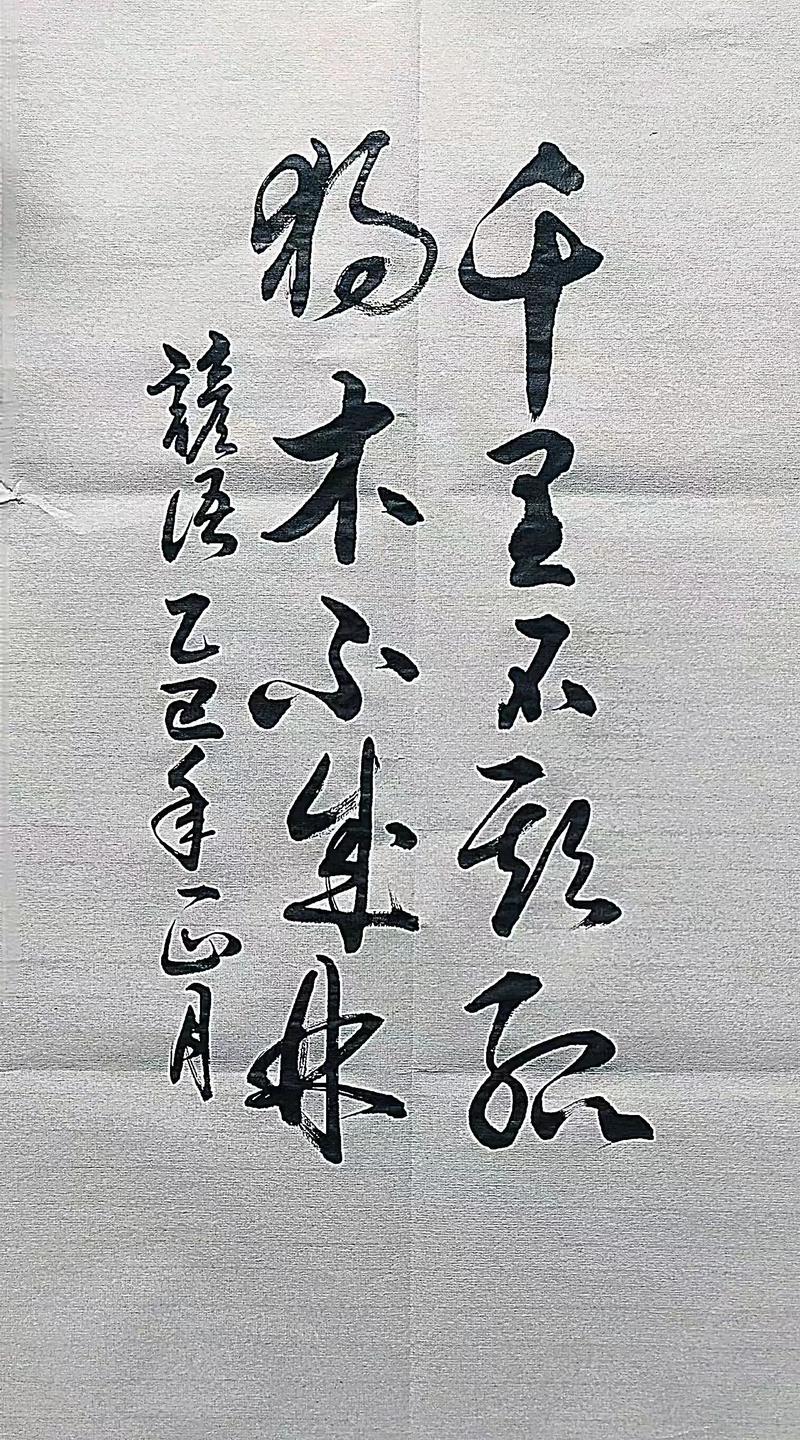 千里不欺孤
獨木不成林
諺语乙巳年正月